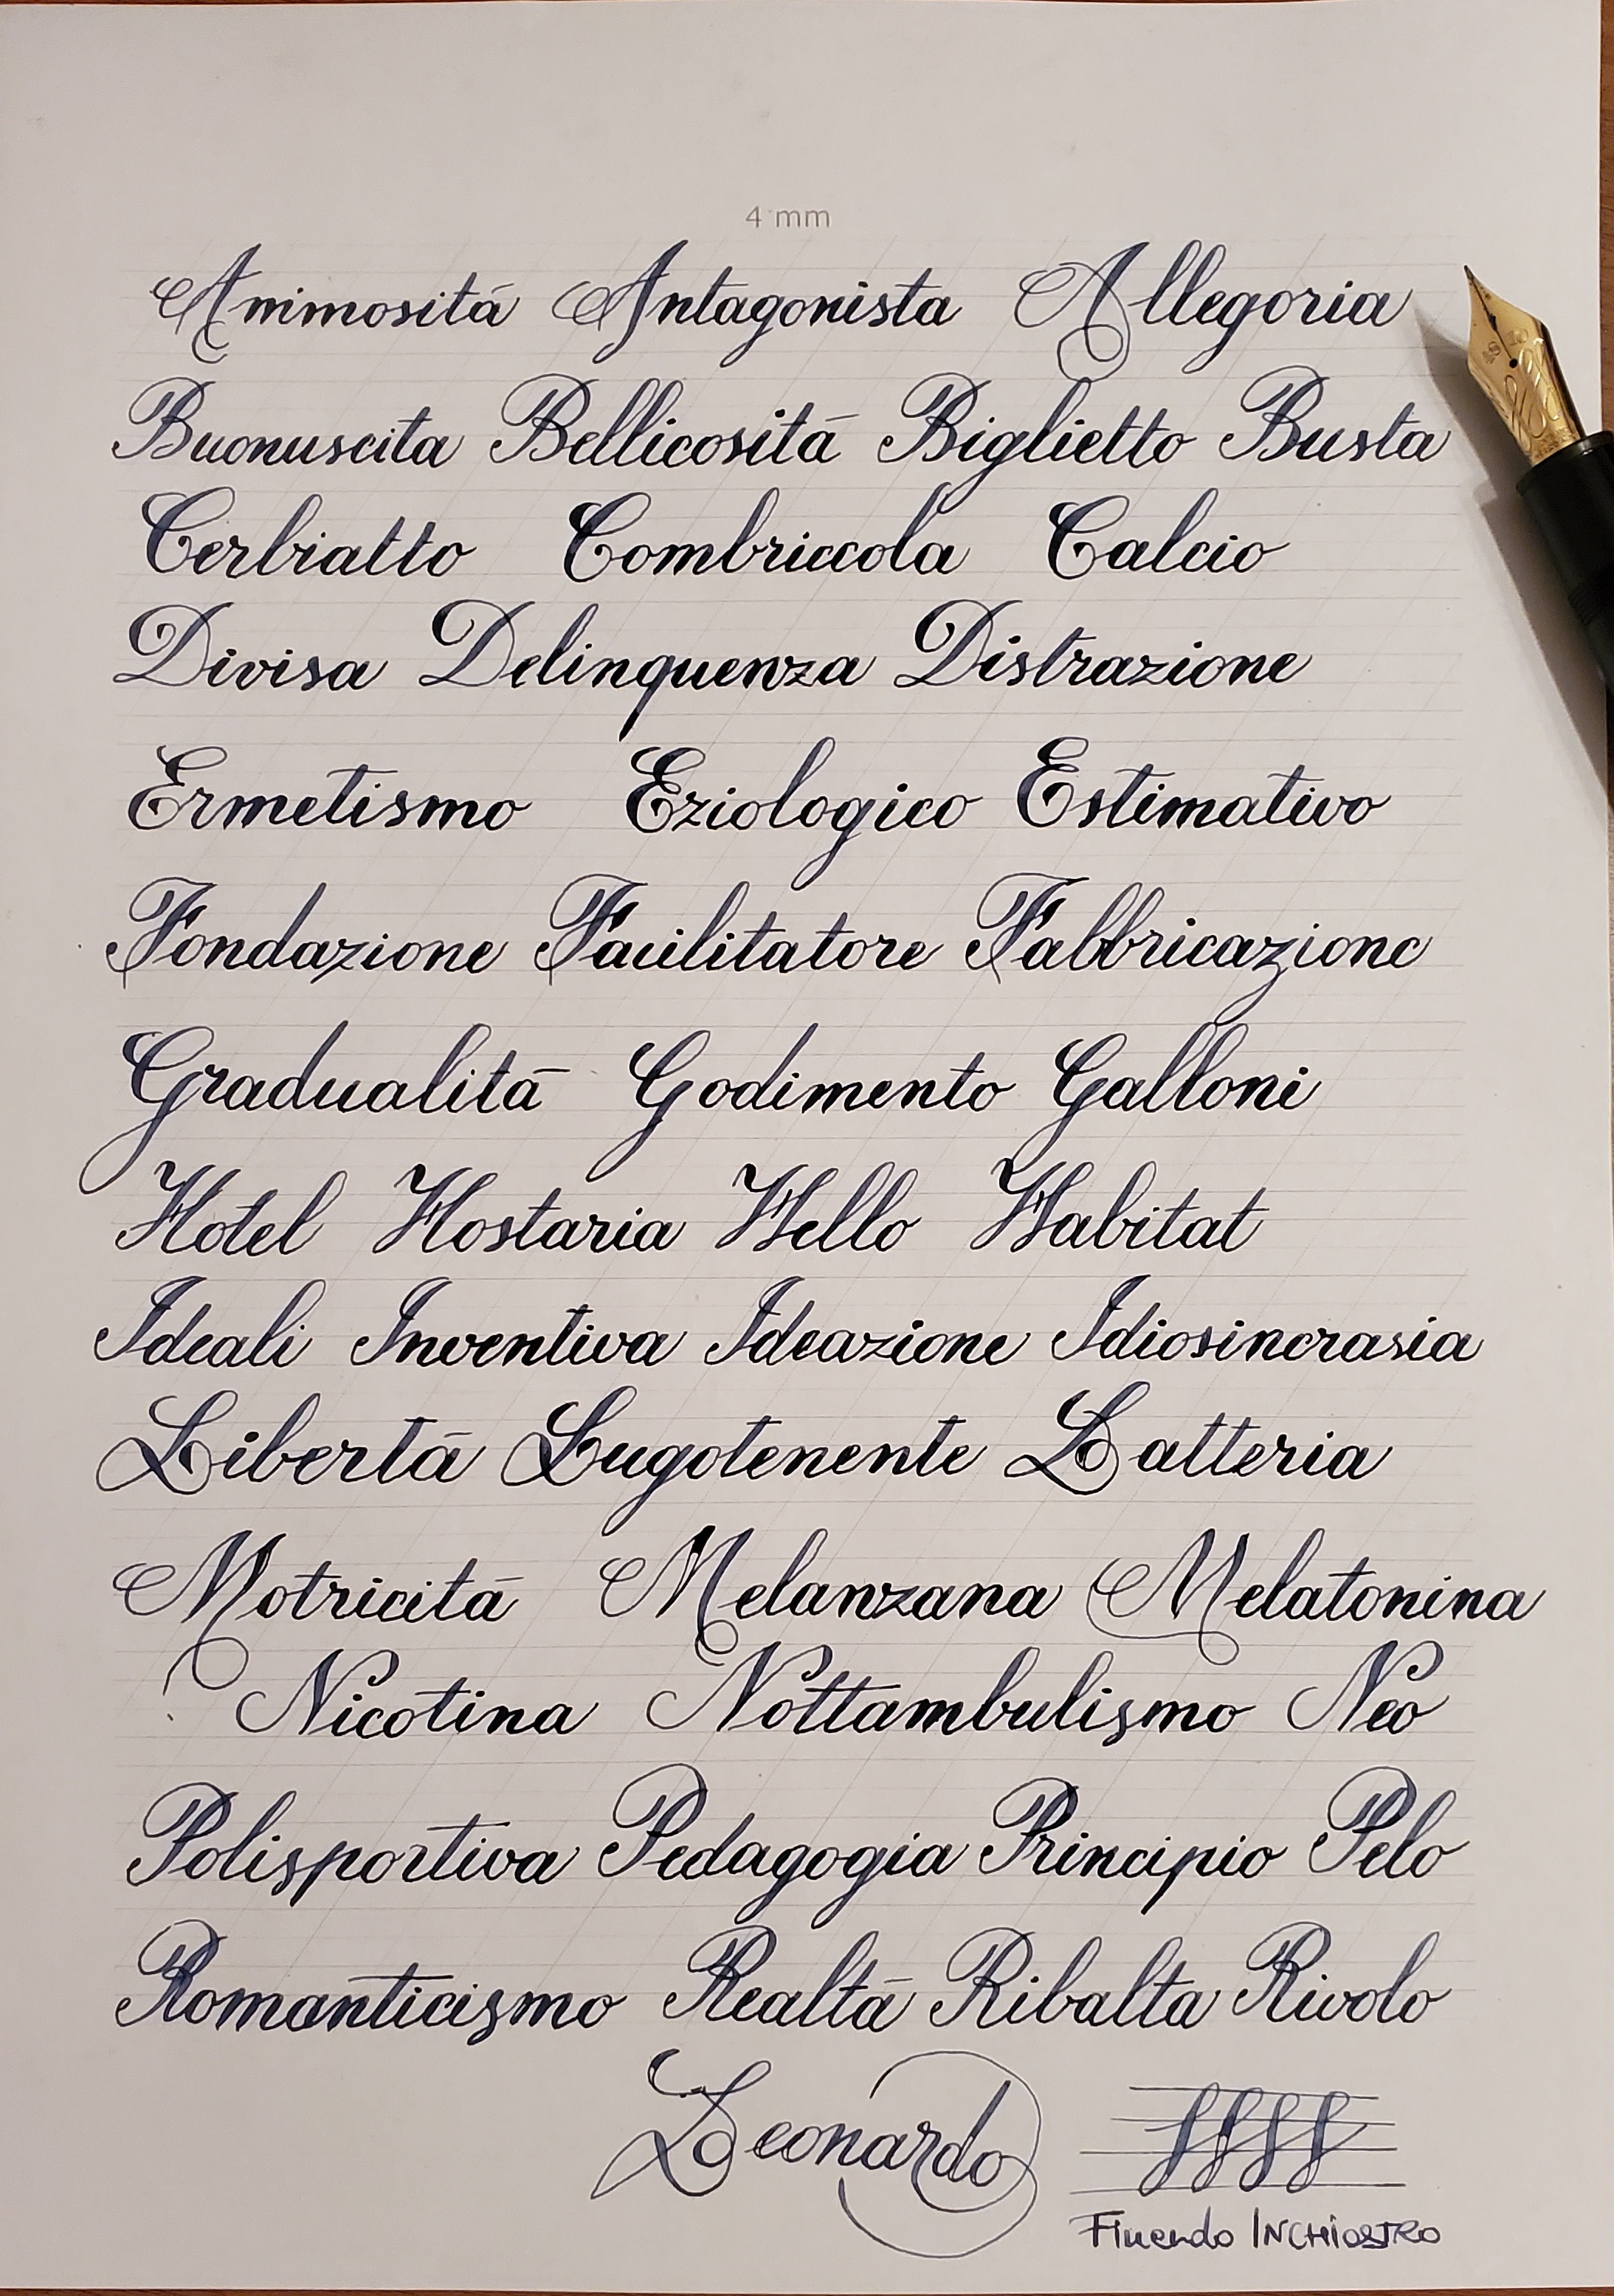 4 mm
Animosità Antagonista Allegoria
Buonuscita Bellicosità Biglietto Busta
Cerbiatto Combriccola Calcio
Divisa Delinquenza Distrazione
Ermetismo Eziologico Estimativo
Fondazione Facilitatore Fabbricazione
Gradualità Godimento Galloni
Hotel Hostaria Hello Habitat
Ideali Inventiva Ideazione Idiosincrasia
Libertà Lugotenente Latteria
Motricità Melanzana Melatonina
Nicotina Nottambulismo Neo
Polisportiva Pedagogia Principio Pelo
Romanticismo Realtà Ribalta Rivolo
Leonardo
Fluendo INCHIOSTRO